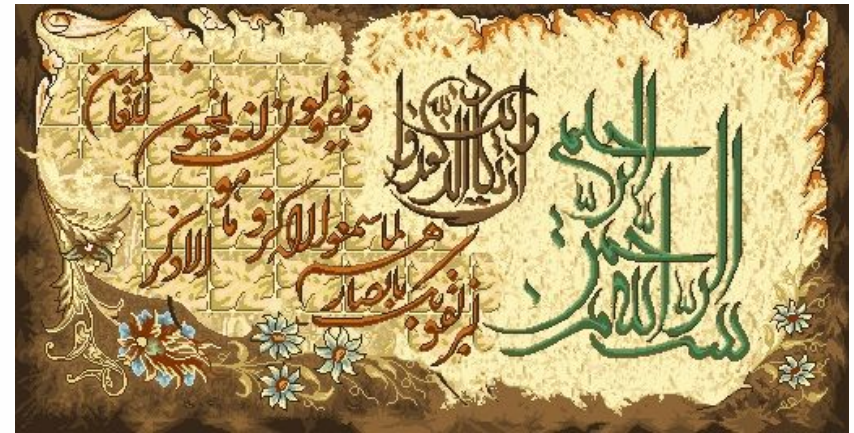 بسم الله الرحمن الرحیم
وان یکاد الذین کفروا
لیزلقونک بابصارهم لما سمعوا الذکر و
یقولون انه لمجنون
و ما هو الا ذکر للعالمین